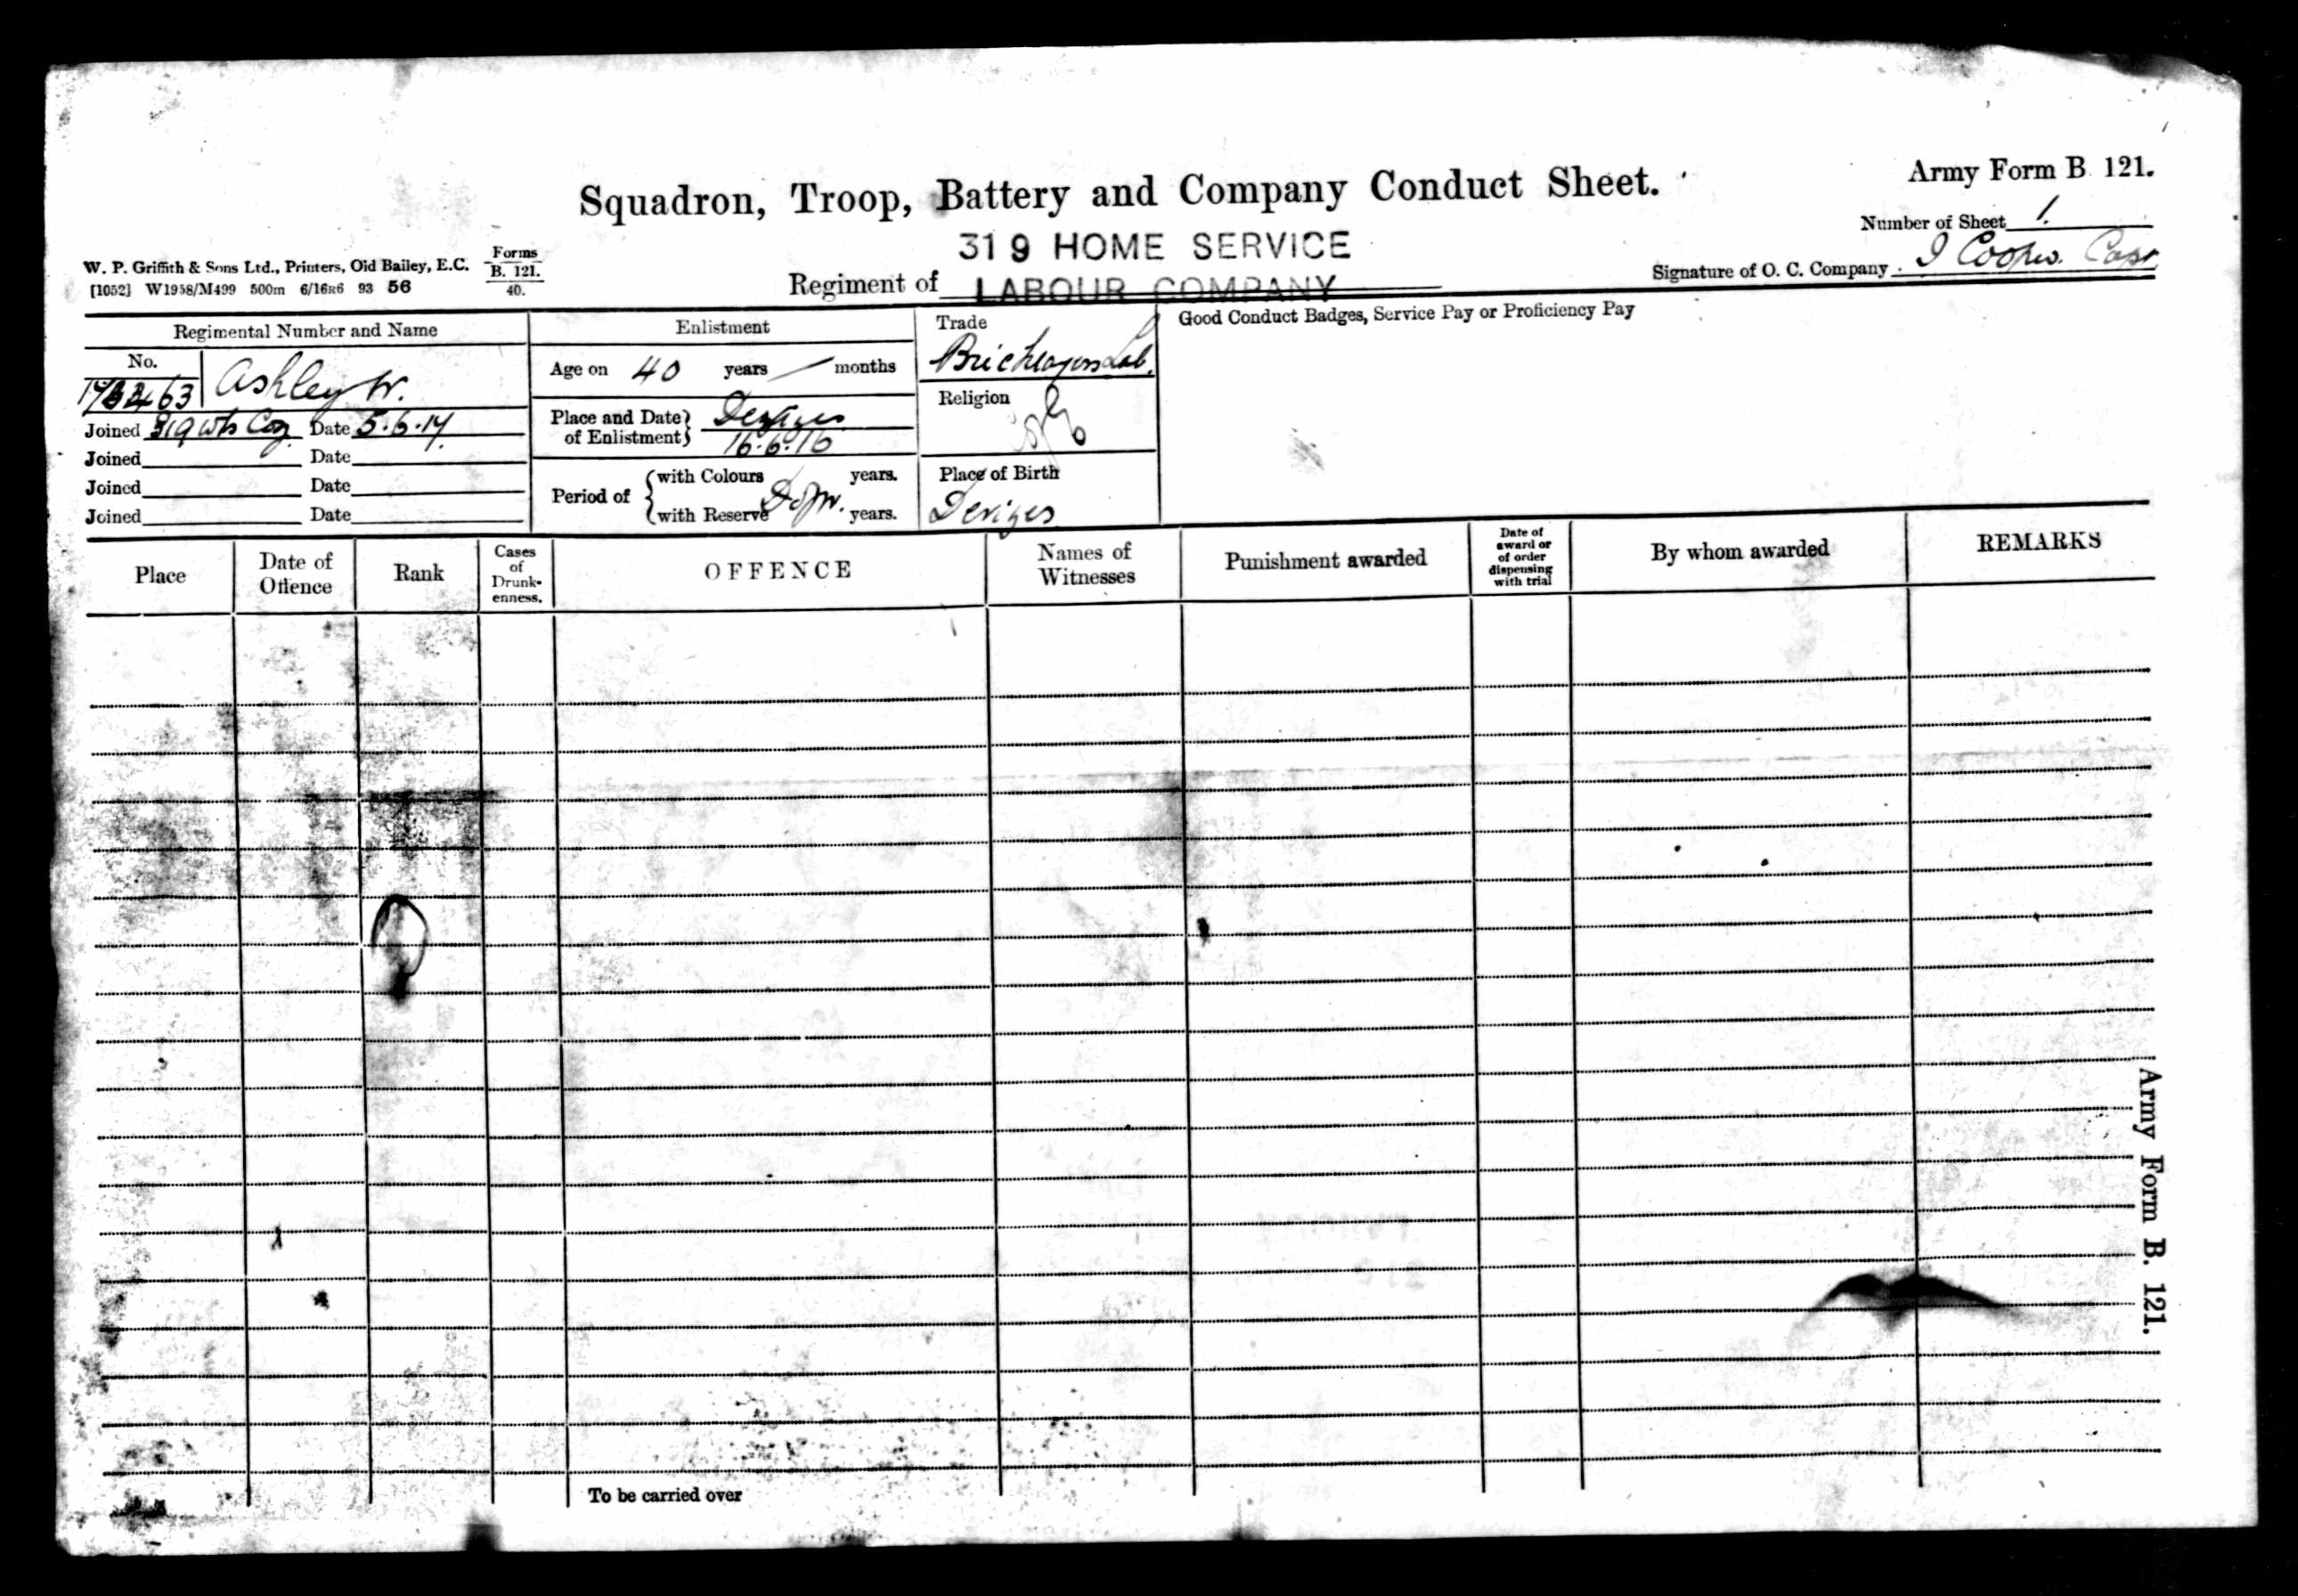 Army Form B. 121.
Squadron, Troop, Battery and Company Conduct Sheet.
Number of Sheet 1.
319 HOME SERVICE
W. P. Griffith & Sons Ltd., Printers, Old Bailey, E.C.
Forms
B. 121.
40.
[1052] W1958/M499 500m 6/16R6 93 56
Regiment of LABOUR COMPANY
Signature of O. C. Company Capt
Regimental Number and Name
Enlistment
Trade
Good Conduct Badges, Service Pay or Proficiency Pay
No.
Ashley W.
Age on 40 years months
Bricklayers Lab.
Religion
CofE
Joined 319 Coy Date 5.6.17
Place and Date of Enlistment Devizes
16.6.16
Joined Date
Joined Date
Joined Date
Period of
with Colours years.
with Reserve years.
Place of Birth
Devizes
Place
Date of Offence
Rank
Cases of Drunk-enness.
OFFENCE
Names of Witnesses
Punishment awarded
Date of award or of order dispensing with trial
By whom awarded
REMARKS
Army Form B. 121.
To be carried over